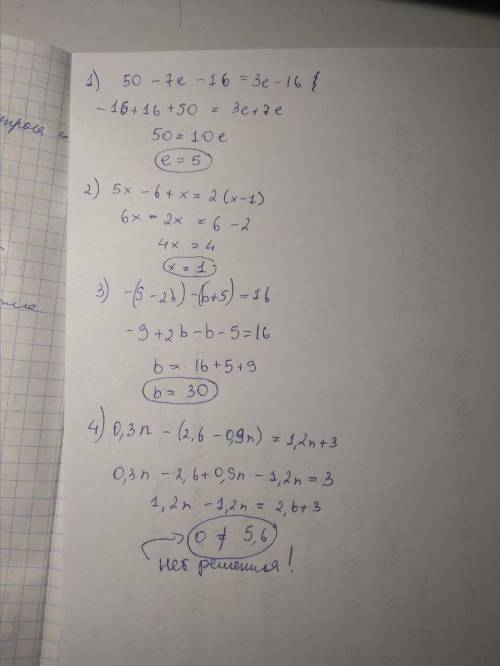 1) 50 - 7e - 16 = 3e - 16 {
-16 + 16 + 50 = 3e + 7e
50 = 10e
e = 5
2) 5x - 6 + x = 2(x - 1)
6x - 2x = 6 - 2
4x = 4
x = 1
3) -(9 - 2b) - (b + 5) = 16
-9 + 2b - b - 5 = 16
b = 16 + 5 + 9
b = 30
4) 0,3n - (2,6 - 0,9n) = 1,2n + 3
0,3n - 2,6 + 0,9n - 1,2n = 3
1,2n - 1,2n = 2,6 + 3
0 ≠ 5,6
нет решения!